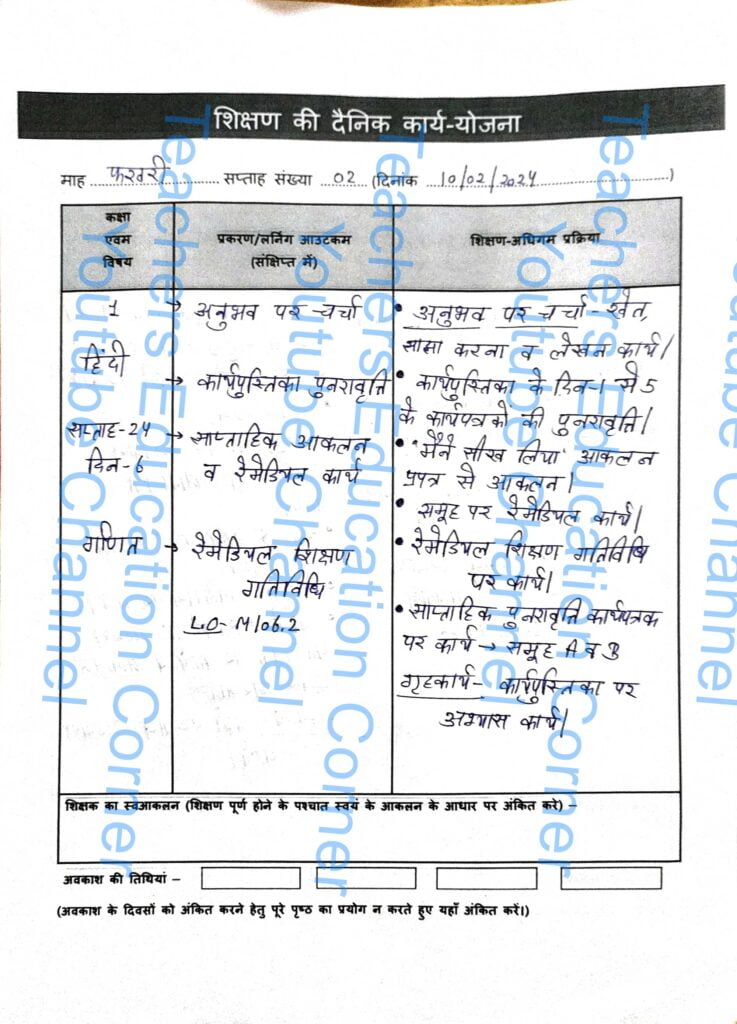 शिक्षण की दैनिक कार्य-योजना
माह फरवरी सप्ताह संख्या 02 (दिनांक 10/02/2024)
कक्षा
एवम
विषय
प्रकरण/लर्निंग आउटकम
(संक्षिप्त में)
शिक्षण-अधिगम प्रक्रिया
1
हिंदी
सप्ताह-24
दिन-6
→ अनुभव पर चर्चा
→ कार्यपुस्तिका पुनरावृत्ति
→ साप्ताहिक आकलन
व रेमेडियल कार्य
• अनुभव पर चर्चा - खेत,
साझा करना व लेखन कार्य।
• कार्यपुस्तिका के दिन-1 से 5
के कार्यपत्रको की पुनरावृति।
• 'मैंने सीख लिया' आकलन
प्रपत्र से आकलन।
• समूह पर रेमेडियल कार्य।
गणित
→ रेमेडियल शिक्षण
गतिविधि
L.O- M106.2
• रेमेडियल शिक्षण गतिविधि
पर कार्य।
• साप्ताहिक पुनरावृति कार्यपत्रक
पर कार्य → समूह A व B
गृहकार्य - कार्यपुस्तिका पर
अभ्यास कार्य।
शिक्षक का स्वआकलन (शिक्षण पूर्ण होने के पश्चात स्वयं के आकलन के आधार पर अंकित करे) –
अवकाश की तिथियां –
(अवकाश के दिवसों को अंकित करने हेतु पूरे पृष्ठ का प्रयोग न करते हुए यहाँ अंकित करें।)
Teachers Education Corner
Youtube Channel
Teachers Education Corner
Youtube Channel
Teachers Education Corner
Youtube Channel